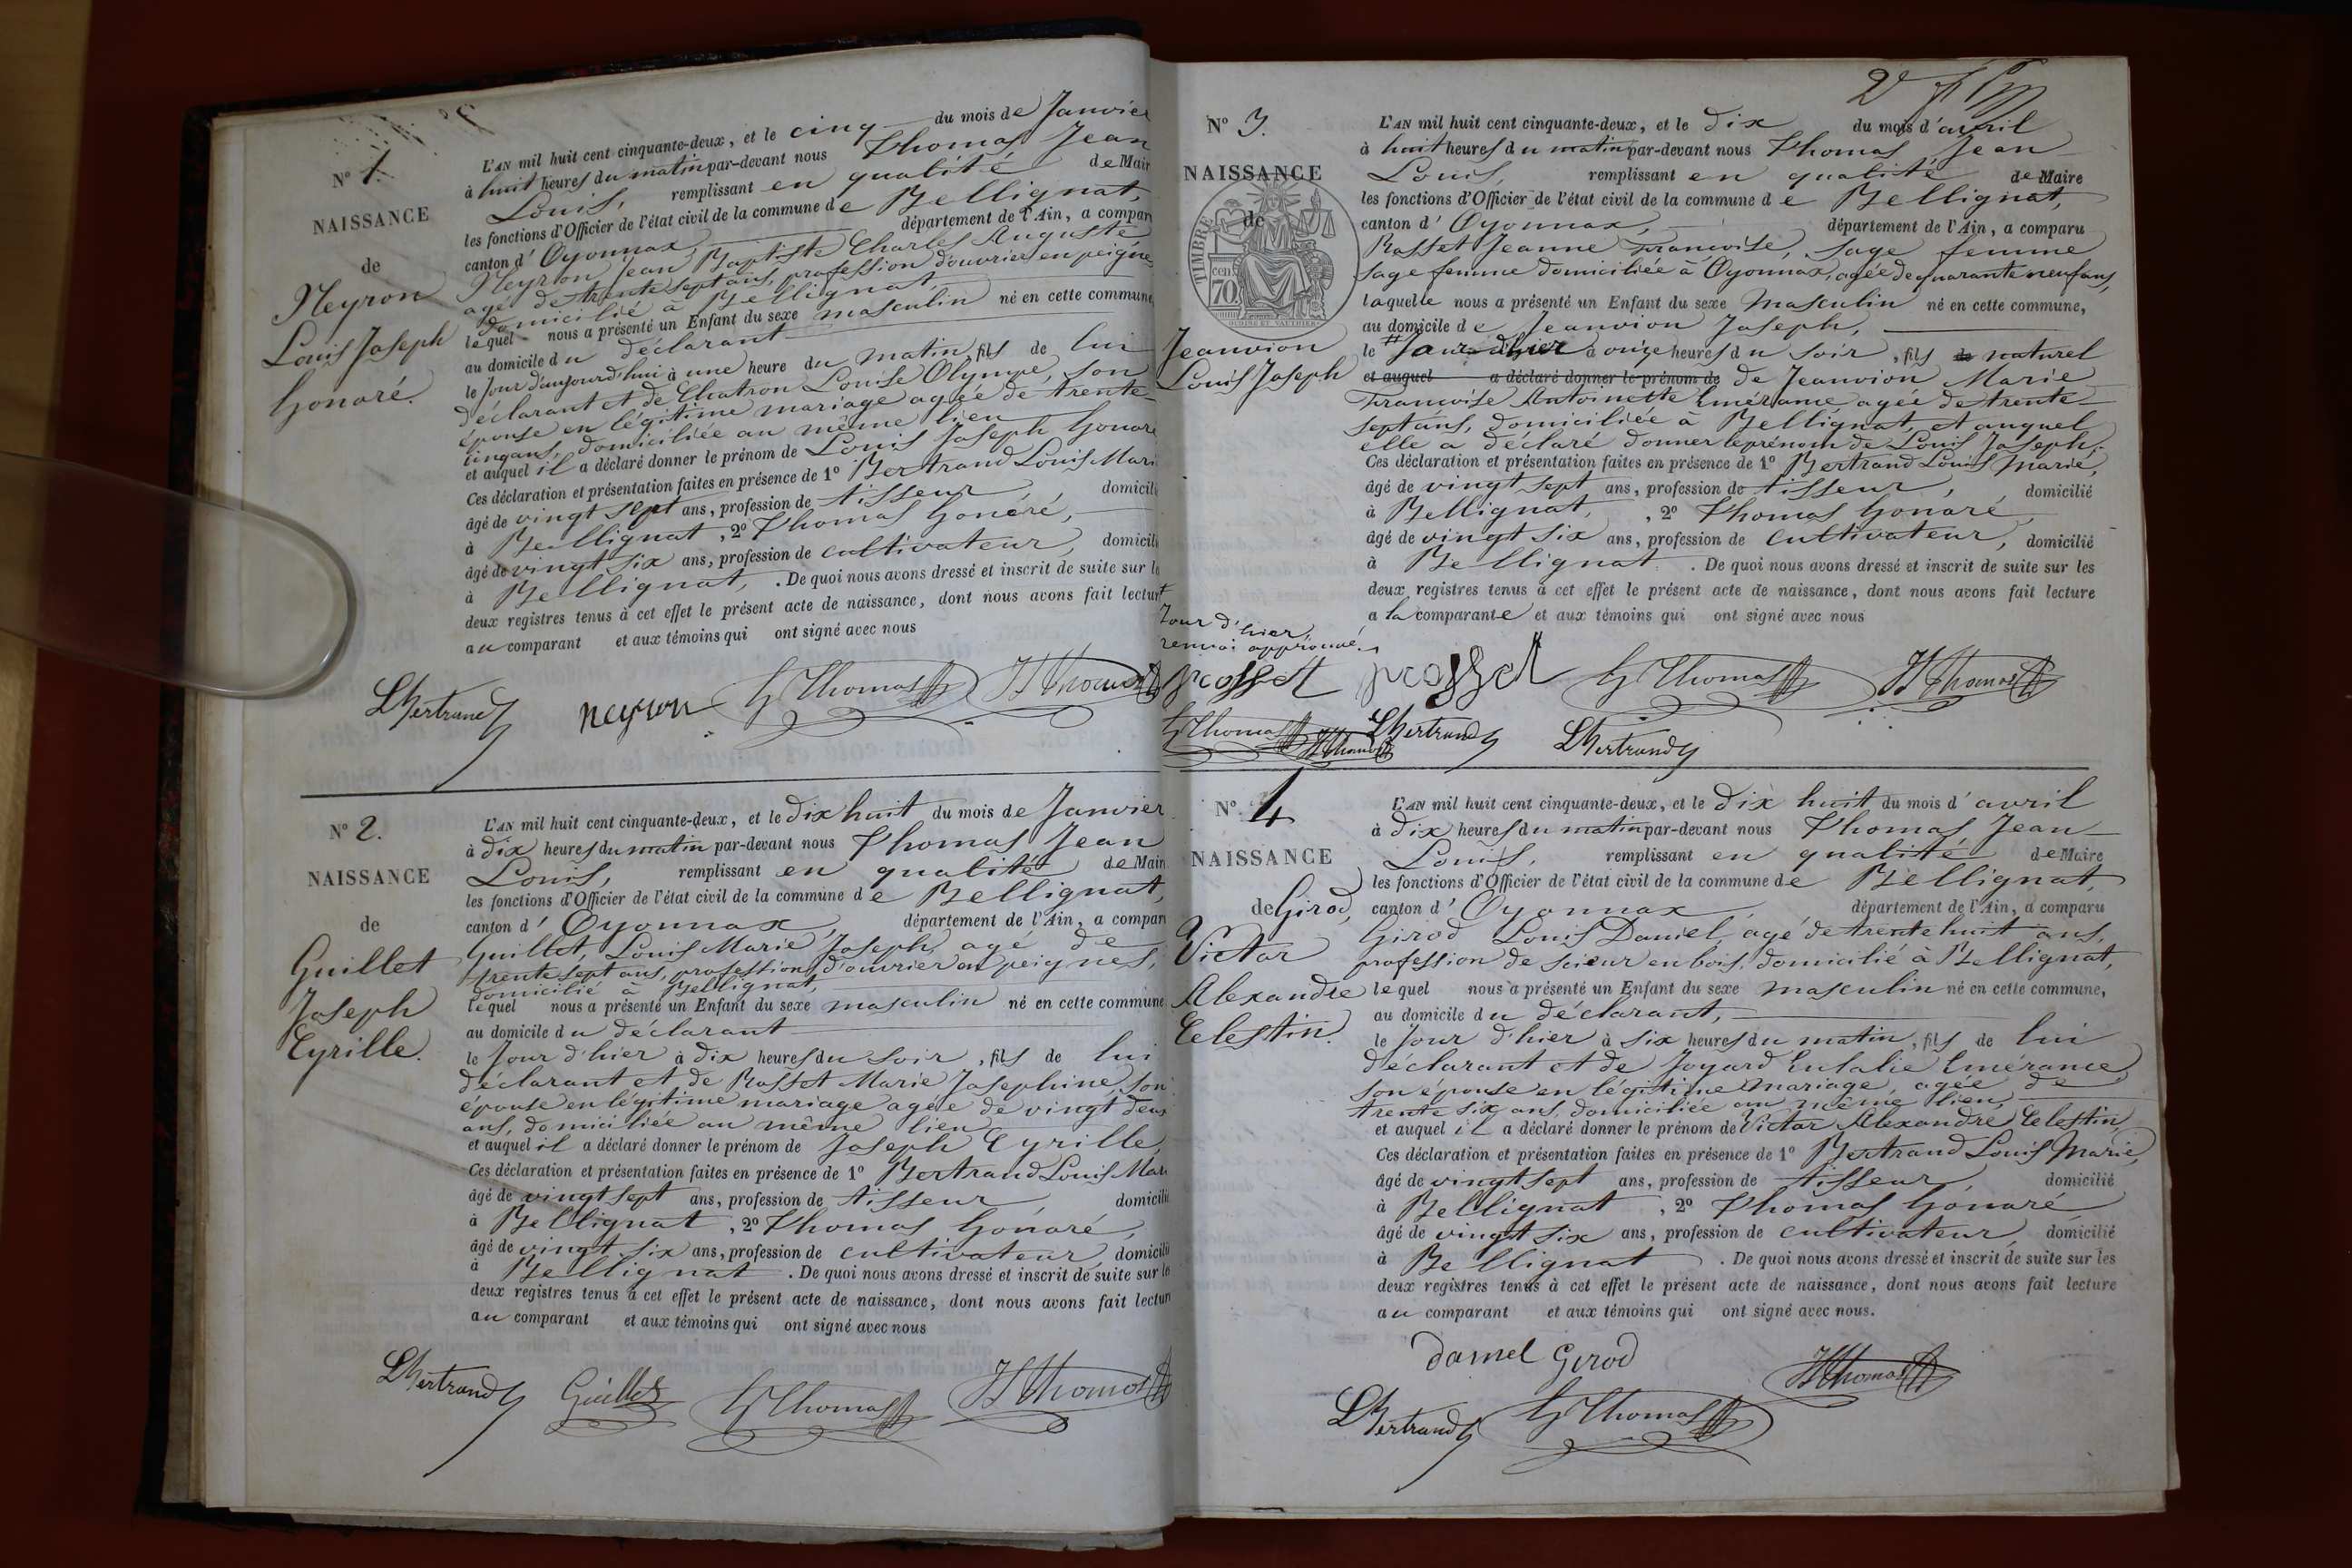 N° 1.
NAISSANCE
de
Neyron
Louis Joseph
honoré.
L'AN mil huit cent cinquante-deux, et le cinq du mois de Janvier
à huit heures du matin par-devant nous Thomas Jean
Louis, remplissant en qualité de Mair
les fonctions d'Officier de l'état civil de la commune de Bellignat,
canton d'Oyonnax, département de l'Ain, a compar
Neyron Jean Baptiste Charles Auguste
agé de trente sept ans, profession d'ouvrier en peignes
domicilié à Bellignat,
lequel nous a présenté un Enfant du sexe masculin né en cette commune,
au domicile du déclarant
le Jour d'aujourd'hui à une heure du matin, fils de lui
déclarant et de Chatron Louise Olympe, son
épouse en légitime mariage agée de trente
cinq ans, domiciliée au même lieu
et auquel il a déclaré donner le prénom de Louis Joseph honoré
Ces déclaration et présentation faites en présence de 1° Bertrand Louis Mari
âgé de vingt sept ans, profession de tisseur, domicili
à Bellignat, 2° Thomas honoré,
âgé de vingt six ans, profession de cultivateur, domicili
à Bellignat, . De quoi nous avons dressé et inscrit de suite sur le
deux registres tenus à cet effet le présent acte de naissance, dont nous avons fait lectur
au comparant et aux témoins qui ont signé avec nous
LBertrand neyron h Thomas JL Thomas
N° 2.
NAISSANCE
de
Guillet
Joseph
Cyrille.
L'AN mil huit cent cinquante-deux, et le dix huit du mois de Janvier
à dix heures du matin par-devant nous Thomas Jean
Louis, remplissant en qualité de Mair
les fonctions d'Officier de l'état civil de la commune de Bellignat,
canton d'Oyonnax, département de l'Ain, a compar
Guillet, Louis Marie Joseph, agé de
trente sept ans, profession d'ouvrier en peignes,
domicilié à Bellignat,
lequel nous a présenté un Enfant du sexe masculin né en cette commune
au domicile du déclarant
le Jour d'hier à dix heures du soir, fils de lui
déclarant et de Rosset Marie Josephine, son
épouse en légitime mariage agée de vingt deux
ans, domiciliée au même lieu
et auquel il a déclaré donner le prénom de Joseph Cyrille,
Ces déclaration et présentation faites en présence de 1° Bertrand Louis Mari
âgé de vingt sept ans, profession de tisseur, domicilié
à Bellignat, 2° Thomas honoré,
âgé de vingt six ans, profession de cultivateur, domicilié
à Bellignat . De quoi nous avons dressé et inscrit de suite sur le
deux registres tenus à cet effet le présent acte de naissance, dont nous avons fait lectur
au comparant et aux témoins qui ont signé avec nous
LBertrand Guillet h Thomas JL Thomas
N° 3.
NAISSANCE
de
TIMBRE
cen
70.
Jeanvion
Louis Joseph
L'AN mil huit cent cinquante-deux, et le dix du mois d'avril
à huit heures du matin par-devant nous Thomas Jean
Louis, remplissant en qualité de Maire
les fonctions d'Officier de l'état civil de la commune de Bellignat,
canton d'Oyonnax, département de l'Ain, a comparu
Rosset Jeanne Françoise, sage femme
sage femme domiciliée à Oyonnax, agée de quarante neuf ans,
laquelle nous a présenté un Enfant du sexe Masculin né en cette commune,
au domicile de Jeanvion Joseph,
le # Jour d'hier à onze heures du soir, fils de naturel
et auquel a déclaré donner le prénom de de Jeanvion Marie
Françoise Antoinette Emérance agée de trente
sept ans, domiciliée à Bellignat, et auquel
elle a déclaré donner le prénom de Louis Joseph.
Ces déclaration et présentation faites en présence de 1° Bertrand Louis Marie,
âgé de vingt sept ans, profession de tisseur, domicilié
à Bellignat, , 2° Thomas honoré,
âgé de vingt six ans, profession de cultivateur, domicilié
à Bellignat . De quoi nous avons dressé et inscrit de suite sur les
deux registres tenus à cet effet le présent acte de naissance, dont nous avons fait lecture
a la comparante et aux témoins qui ont signé avec nous
Jour d'hier,
renvoi approuvé.
rosset rosset h Thomas JL Thomas
h Thomas JL Thomas LBertrand LBertrand
N° 4
NAISSANCE
de Girod,
Victor
Alexandre
Celestin.
L'AN mil huit cent cinquante-deux, et le dix huit du mois d'avril
à dix heures du matin par-devant nous Thomas Jean
Louis, remplissant en qualité de Maire
les fonctions d'Officier de l'état civil de la commune de Bellignat,
canton d'Oyonnax, département de l'Ain, a comparu
Girod Louis Daniel, agé de trente huit ans,
profession de scieur en bois, domicilié à Bellignat,
lequel nous a présenté un Enfant du sexe masculin né en cette commune,
au domicile du déclarant,
le Jour d'hier à six heures du matin, fils de lui
déclarant et de Joyard Eulalie Emérance,
son épouse en légitime mariage, agée de
trente six ans, domiciliée au même lieu,
et auquel il a déclaré donner le prénom de Victor Alexandre Celestin,
Ces déclaration et présentation faites en présence de 1° Bertrand Louis Marie,
âgé de vingt sept ans, profession de tisseur, domicilié
à Bellignat , 2° Thomas honoré,
âgé de vingt six ans, profession de cultivateur, domicilié
à Bellignat . De quoi nous avons dressé et inscrit de suite sur les
deux registres tenus à cet effet le présent acte de naissance, dont nous avons fait lecture
au comparant et aux témoins qui ont signé avec nous.
daniel Girod
LBertrand h Thomas JL Thomas